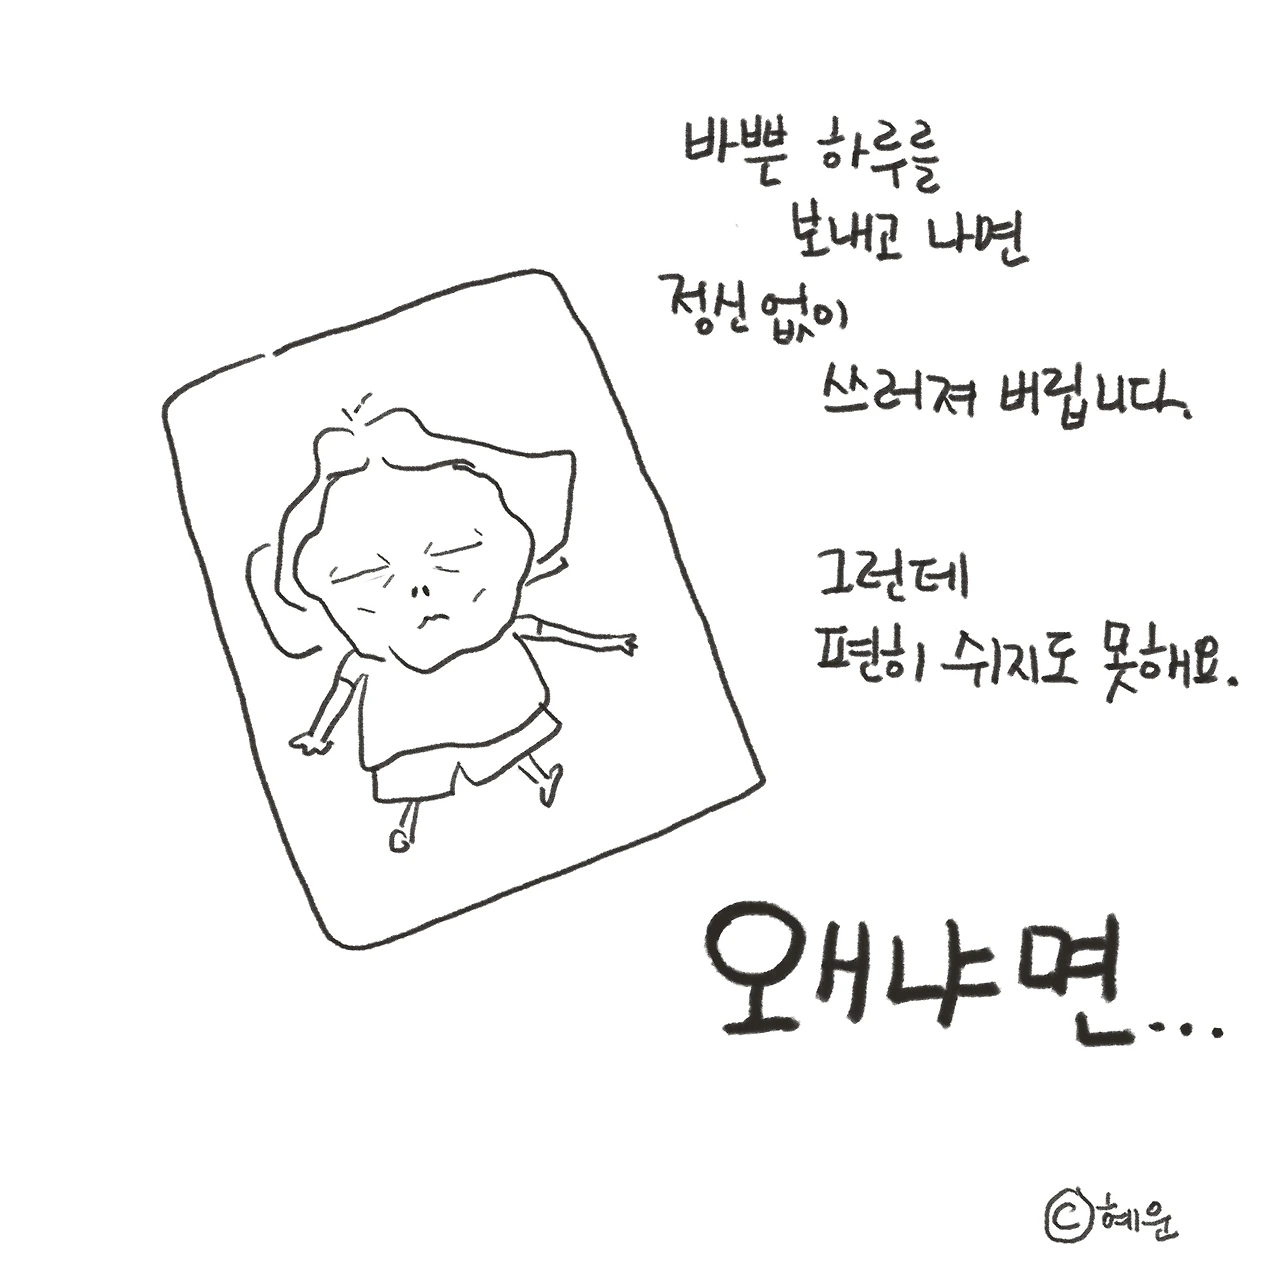 바쁜 하루를
보내고 나면
정신없이
쓰러져 버립니다.
그런데
편히 쉬지도 못해요.
왜냐면...
ⓒ혜윤